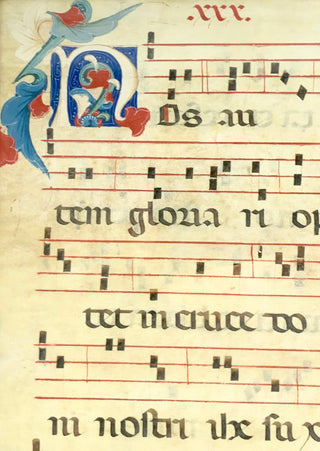 .xxx.
Nos au
tem gloria ri op
tet in cruce do
ni nostri ihx fu x